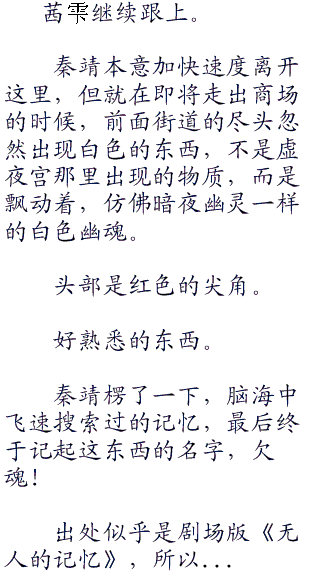 茜雫继续跟上。
秦靖本意加快速度离开
这里，但就在即将走出商场
的时候，前面街道的尽头忽
然出现白色的东西，不是虚
夜宫那里出现的物质，而是
飘动着，仿佛暗夜幽灵一样
的白色幽魂。
头部是红色的尖角。
好熟悉的东西。
秦靖楞了一下，脑海中
飞速搜索过的记忆，最后终
于记起这东西的名字，欠
魂！
出处似乎是剧场版《无
人的记忆》，所以...